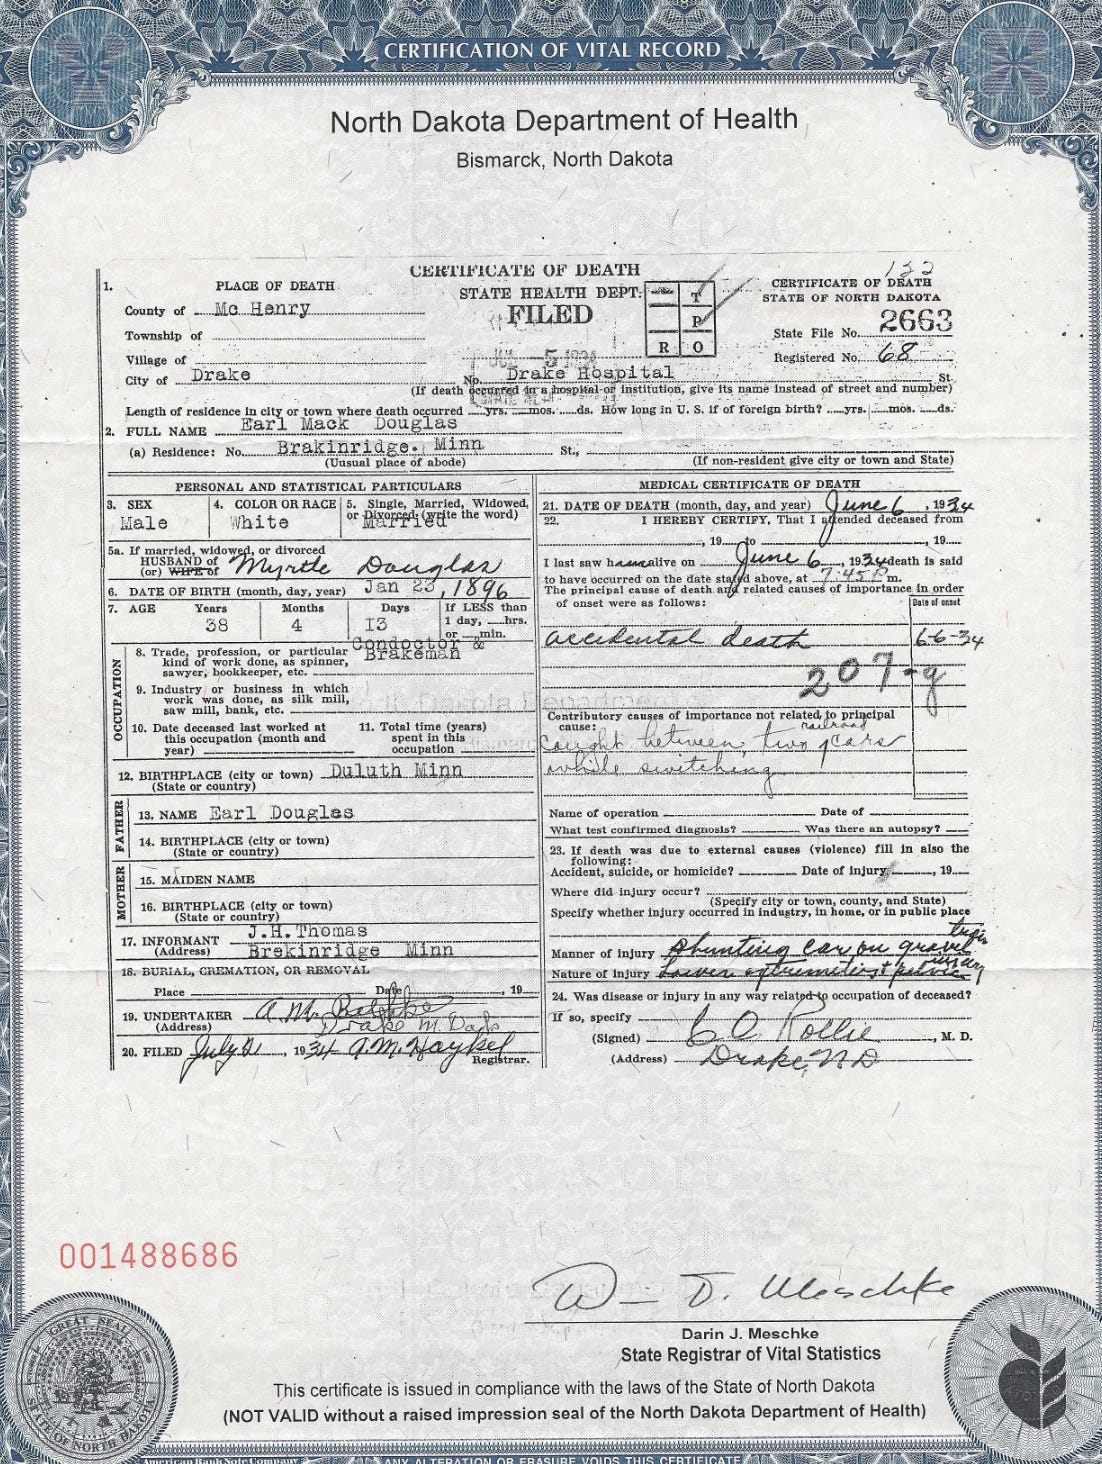 CERTIFICATION OF VITAL RECORD
North Dakota Department of Health
Bismarck, North Dakota
CERTIFICATE OF DEATH
132
1. PLACE OF DEATH
STATE HEALTH DEPT.
CERTIFICATE OF DEATH
STATE OF NORTH DAKOTA
County of Mc Henry
FILED
T
P
R O
State File No. 2663
Township of
Registered No. 68
Village of
JUL 5 1934
City of Drake No. Drake Hospital St.
(If death occurred in a hospital or institution, give its name instead of street and number)
Length of residence in city or town where death occurred yrs. mos. ds. How long in U. S. if of foreign birth? yrs. mos. ds.
2. FULL NAME Earl Mack Douglas
(a) Residence: No. Brakinridge. Minn St.,
(Usual place of abode) (If non-resident give city or town and State)
PERSONAL AND STATISTICAL PARTICULARS
3. SEX Male
4. COLOR OR RACE White
5. Single, Married, Widowed, or Divorced (write the word) Married
5a. If married, widowed, or divorced
HUSBAND of
(or) WIFE of Myrtle Douglas
6. DATE OF BIRTH (month, day, year) Jan 23, 1896
7. AGE Years Months Days If LESS than
38 4 13 1 day, hrs.
or min.
OCCUPATION
8. Trade, profession, or particular kind of work done, as spinner, sawyer, bookkeeper, etc. Condoctor & Brakeman
9. Industry or business in which work was done, as silk mill, saw mill, bank, etc.
10. Date deceased last worked at this occupation (month and year)
11. Total time (years) spent in this occupation
12. BIRTHPLACE (city or town) Duluth Minn
(State or country)
FATHER
13. NAME Earl Douglas
14. BIRTHPLACE (city or town)
(State or country)
MOTHER
15. MAIDEN NAME
16. BIRTHPLACE (city or town)
(State or country)
17. INFORMANT J.H.Thomas
(Address) Brekinridge Minn
18. BURIAL, CREMATION, OR REMOVAL
Place Date , 19
19. UNDERTAKER A. M.
(Address) Drake N. Dak
20. FILED July 2, 1934 A. M. Haykel
Registrar.
MEDICAL CERTIFICATE OF DEATH
21. DATE OF DEATH (month, day, and year) June 6, 1934
22. I HEREBY CERTIFY, That I attended deceased from
, 19 to , 19
I last saw h alive on June 6, 1934 death is said
to have occurred on the date stated above, at 7:45 P m.
The principal cause of death and related causes of importance in order
of onset were as follows: Date of onset
accidental death 6-6-34
207-g
Contributory causes of importance not related to principal
cause: railroad
caught between two cars
while switching
Name of operation Date of
What test confirmed diagnosis? Was there an autopsy?
23. If death was due to external causes (violence) fill in also the
following:
Accident, suicide, or homicide? Date of injury , 19
Where did injury occur?
(Specify city or town, county, and State)
Specify whether injury occurred in industry, in home, or in public place
Manner of injury Shunting car on gravel train
Nature of injury Lower extremeties & pelvic injury
24. Was disease or injury in any way related to occupation of deceased?
If so, specify
(Signed) C O Rollie, M. D.
(Address) Drake, N D
001488686
D. Meschke
Darin J. Meschke
State Registrar of Vital Statistics
This certificate is issued in compliance with the laws of the State of North Dakota
(NOT VALID without a raised impression seal of the North Dakota Department of Health)
GREAT SEAL
STATE OF NORTH DAKOTA
American Bank Note Company
ANY ALTERATION OR ERASURE VOIDS THIS CERTIFICATE